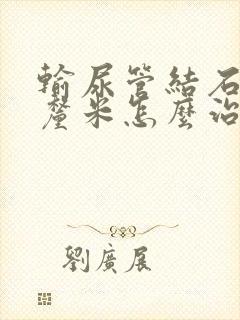 輸尿管結石
釐米怎麼治
劉廣展